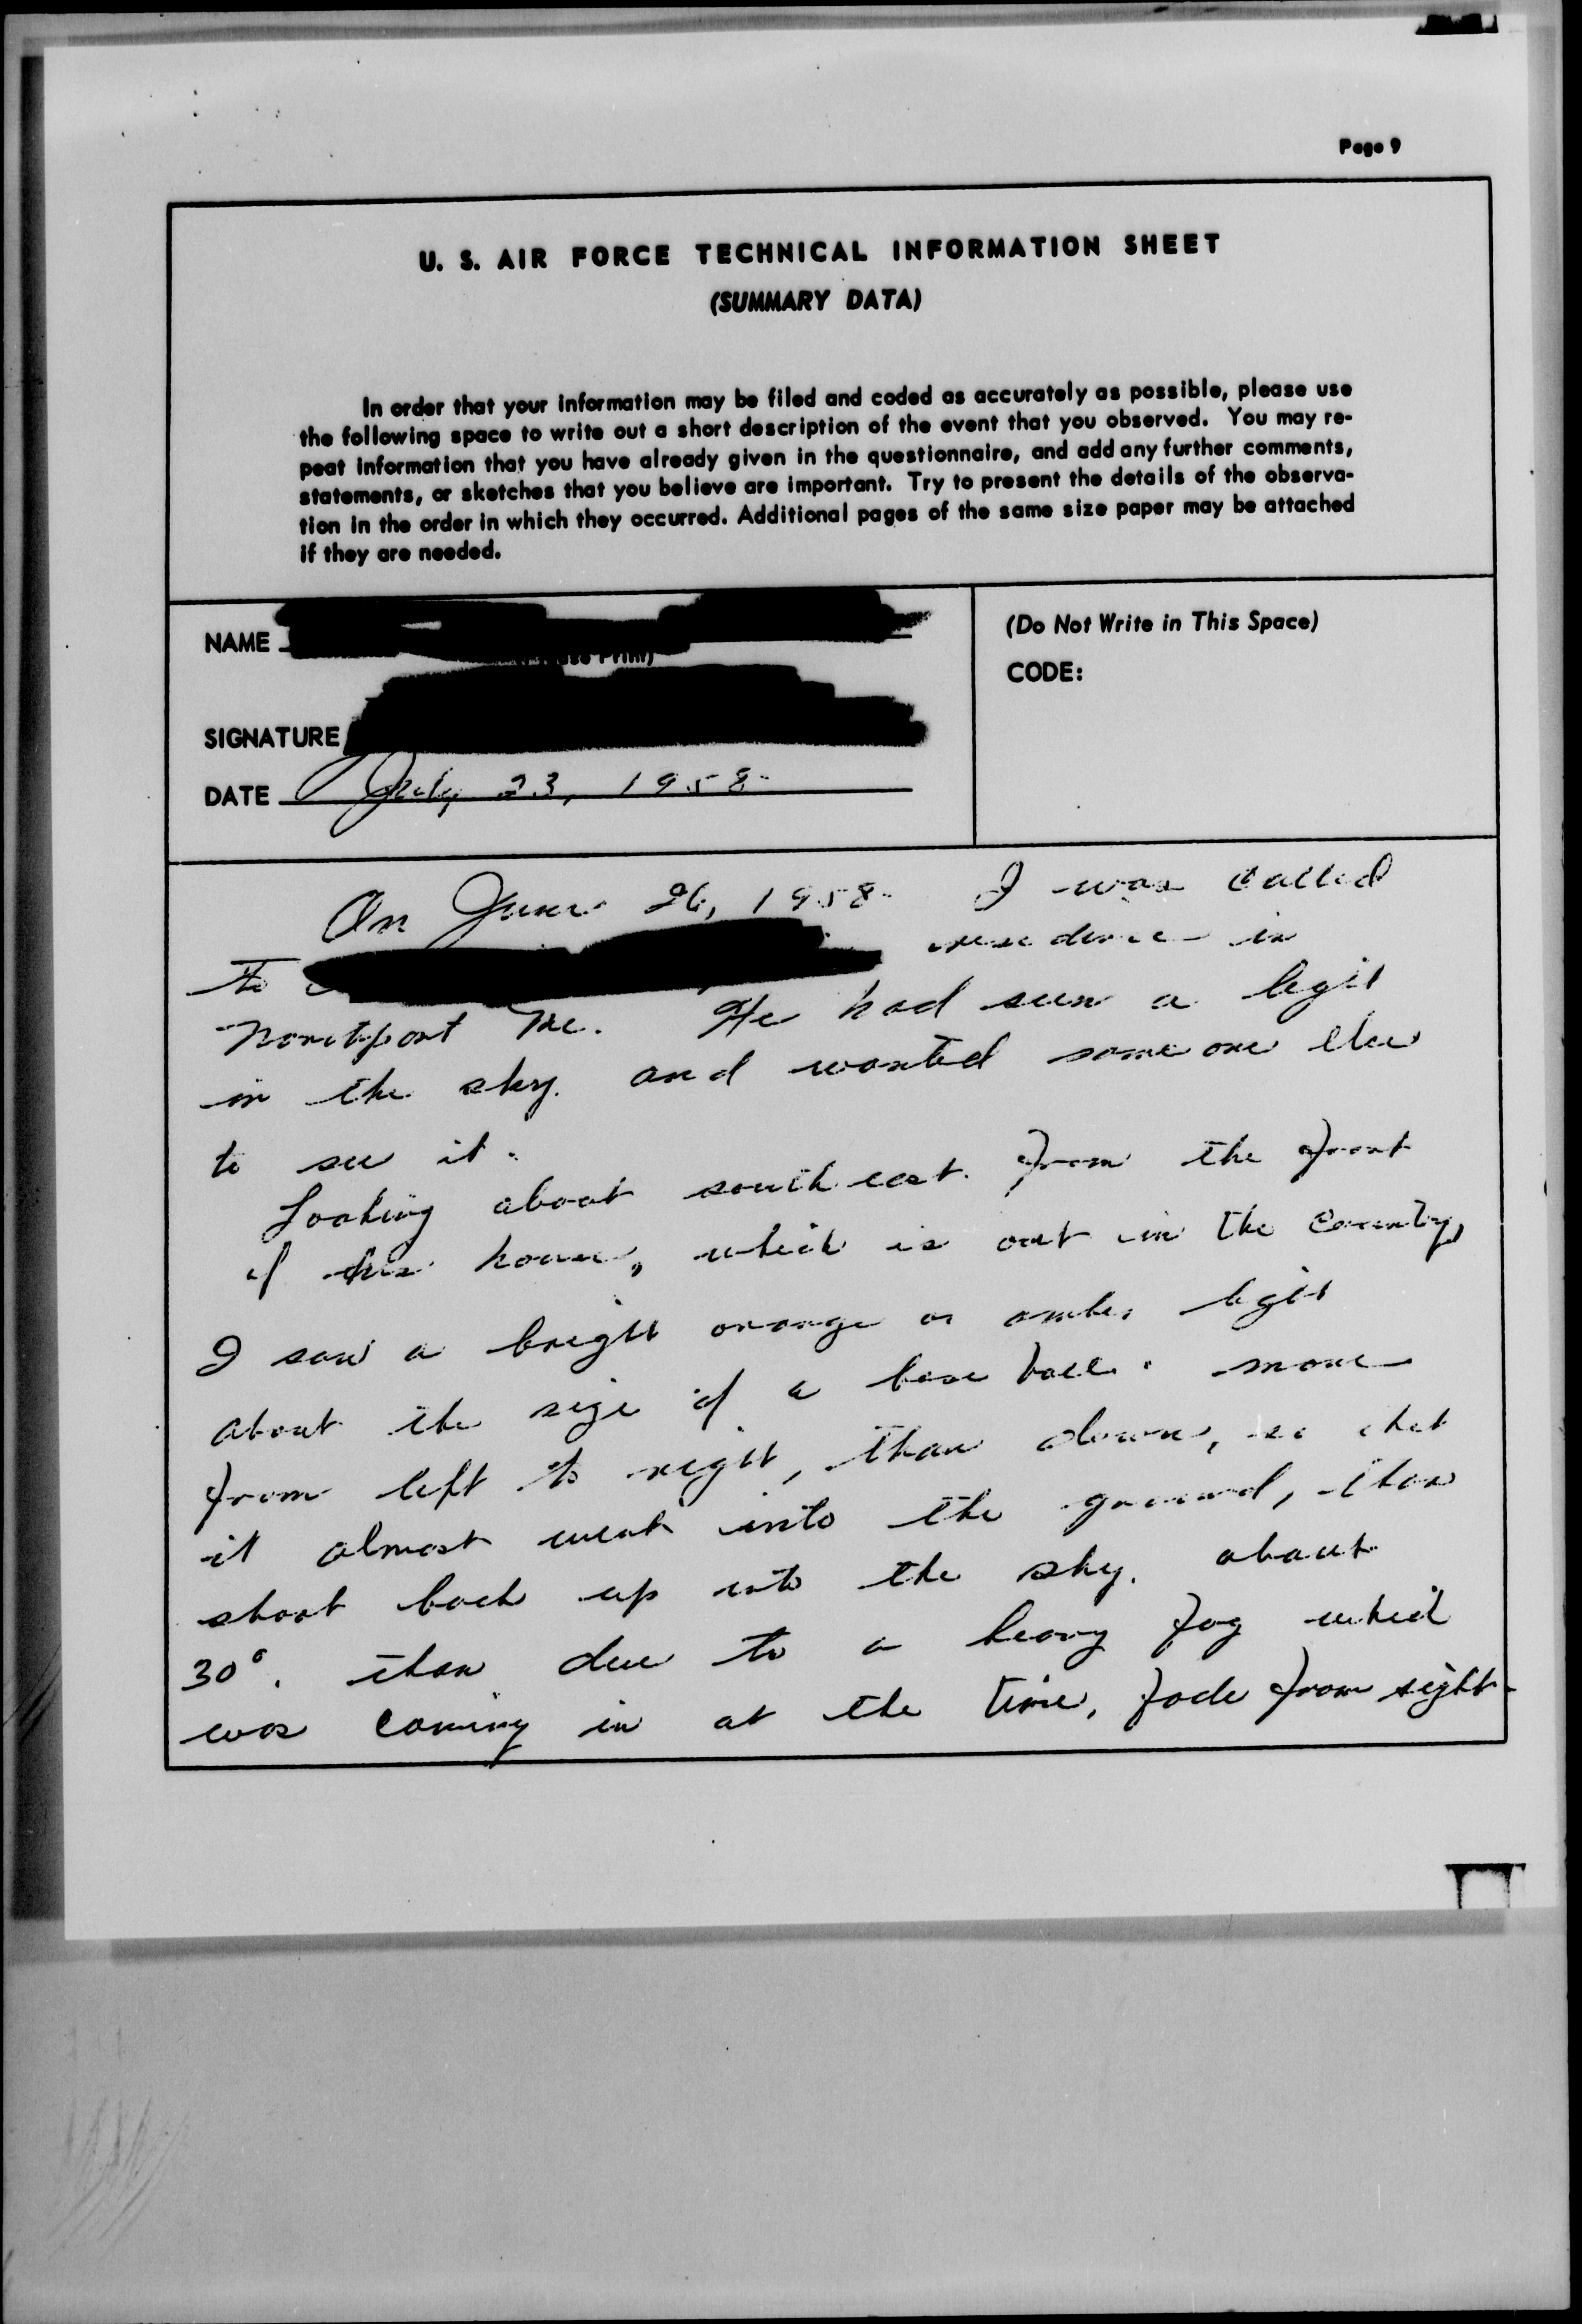 Page 9
U. S. AIR FORCE TECHNICAL INFORMATION SHEET
(SUMMARY DATA)
In order that your information may be filed and coded as accurately as possible, please use
the following space to write out a short description of the event that you observed. You may re-
peat information that you have already given in the questionnaire, and add any further comments,
statements, or sketches that you believe are important. Try to present the details of the observa-
tion in the order in which they occurred. Additional pages of the same size paper may be attached
if they are needed.
NAME
(Do Not Write in This Space)
CODE:
SIGNATURE
DATE July 23, 1958
On June 26, 1958 I was called
to residence in
Northport Me. He had seen a light
in the sky. and wanted some one else
to see it.
Looking about south east. from the front
of his house, which is out in the country,
I saw a bright orange or amber light
about the size of a base ball. move
from left to right, than down, so that
it almost went into the ground, than
shoot back up into the sky. about
30°. than due to a heavy fog which
was coming in at the time, fade from sight.